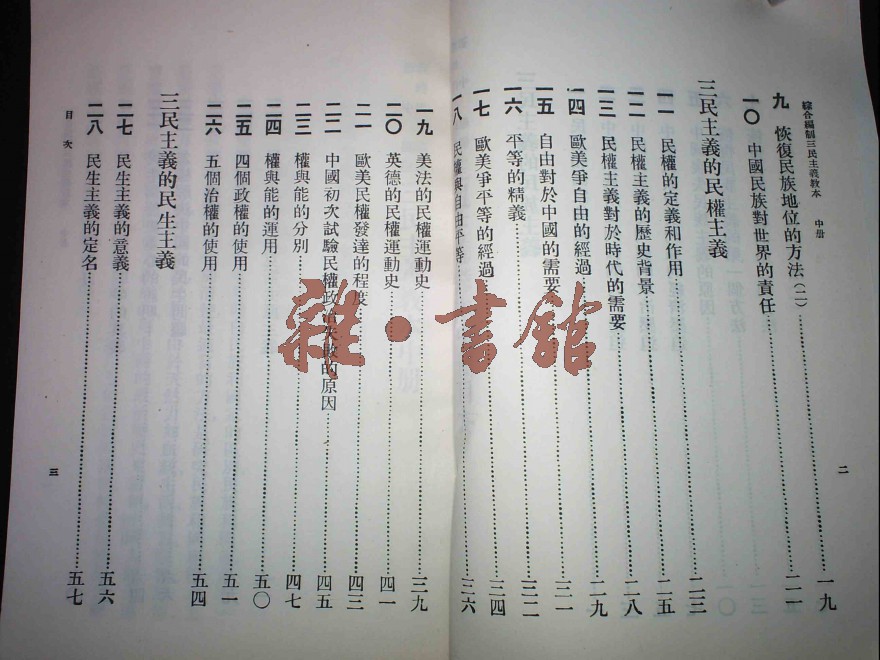 綜合編制三民主義教本 中册
九 恢復民族地位的方法(二)⋯⋯一九
一〇 中國民族對世界的責任⋯⋯二一
三民主義的民權主義
一一 民權的定義和作用⋯⋯二三
一二 民權主義的歷史背景⋯⋯二五
一三 民權主義對於時代的需要⋯⋯二八
一四 歐美爭自由的經過⋯⋯二九
一五 自由對於中國的需要⋯⋯三一
一六 平等的精義⋯⋯三二
一七 歐美爭平等的經過⋯⋯三四
一八 民權與自由平等⋯⋯三六
二
一九 美法的民權運動史⋯⋯三九
二〇 英德的民權運動史⋯⋯四一
二一 歐美民權發達的程度⋯⋯四三
二二 中國初次試驗民權政治失敗的原因⋯⋯四五
二三 權與能的分別⋯⋯四七
二四 權與能的運用⋯⋯五〇
二五 四個政權的使用⋯⋯五一
二六 五個治權的使用⋯⋯五四
三民主義的民生主義
二七 民生主義的意義⋯⋯五六
二八 民生主義的定名⋯⋯五七
目次
三
雜·書館